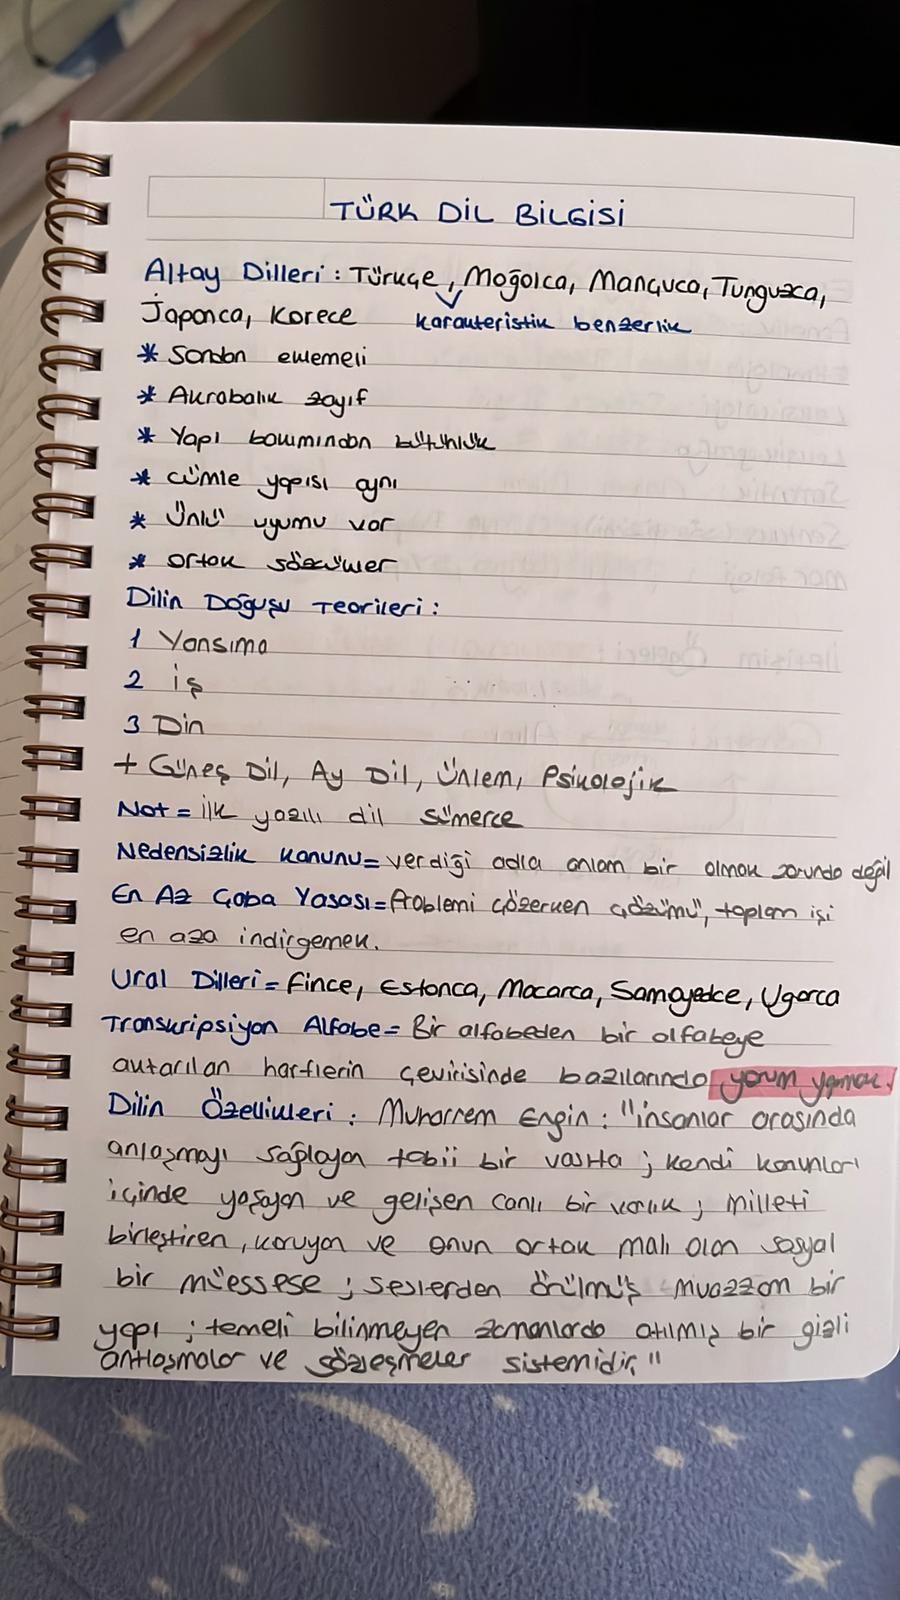 TÜRK DİL BİLGİSİ
Altay Dilleri : Türkçe, Moğolca, Mançuca, Tunguzca,
Japonca, Korece karakteristik benzerlik
* Sondan eklemeli
* Akrabalık zayıf
* Yapı bakımından bütünlük
* cümle yapısı aynı
* Ünlü uyumu var
* ortak sözcükler
Dilin Doğuşu Teorileri :
1 Yansıma
2 İş
3 Din
+ Güneş Dil, Ay Dil, Ünlem, Psikolojik
Not = İlk yazılı dil sümerce
Nedensizlik kanunu = verdiği adla anlam bir olmak zorunda değil
En Az Çaba Yasası = Problemi çözerken çözümü, toplam işi
en aza indirgemek.
Ural Dilleri = Fince, Estonca, Macarca, Samoyedce, Ugorca
Transkripsiyon Alfabe = Bir alfabeden bir alfabeye
aktarılan harflerin çevirisinde bazılarında yorum yapmak.
Dilin Özellikleri : Muharrem Engin : "insanlar arasında
anlaşmayı sağlayan tabii bir vasıta ; kendi kanunları
içinde yaşayan ve gelişen canlı bir varlık ; milleti
birleştiren, koruyan ve onun ortak malı olan sosyal
bir müessese ; seslerden örülmüş muazzam bir
yapı ; temeli bilinmeyen zamanlarda atılmış bir gizli
antlaşmalar ve sözleşmeler sistemidir."